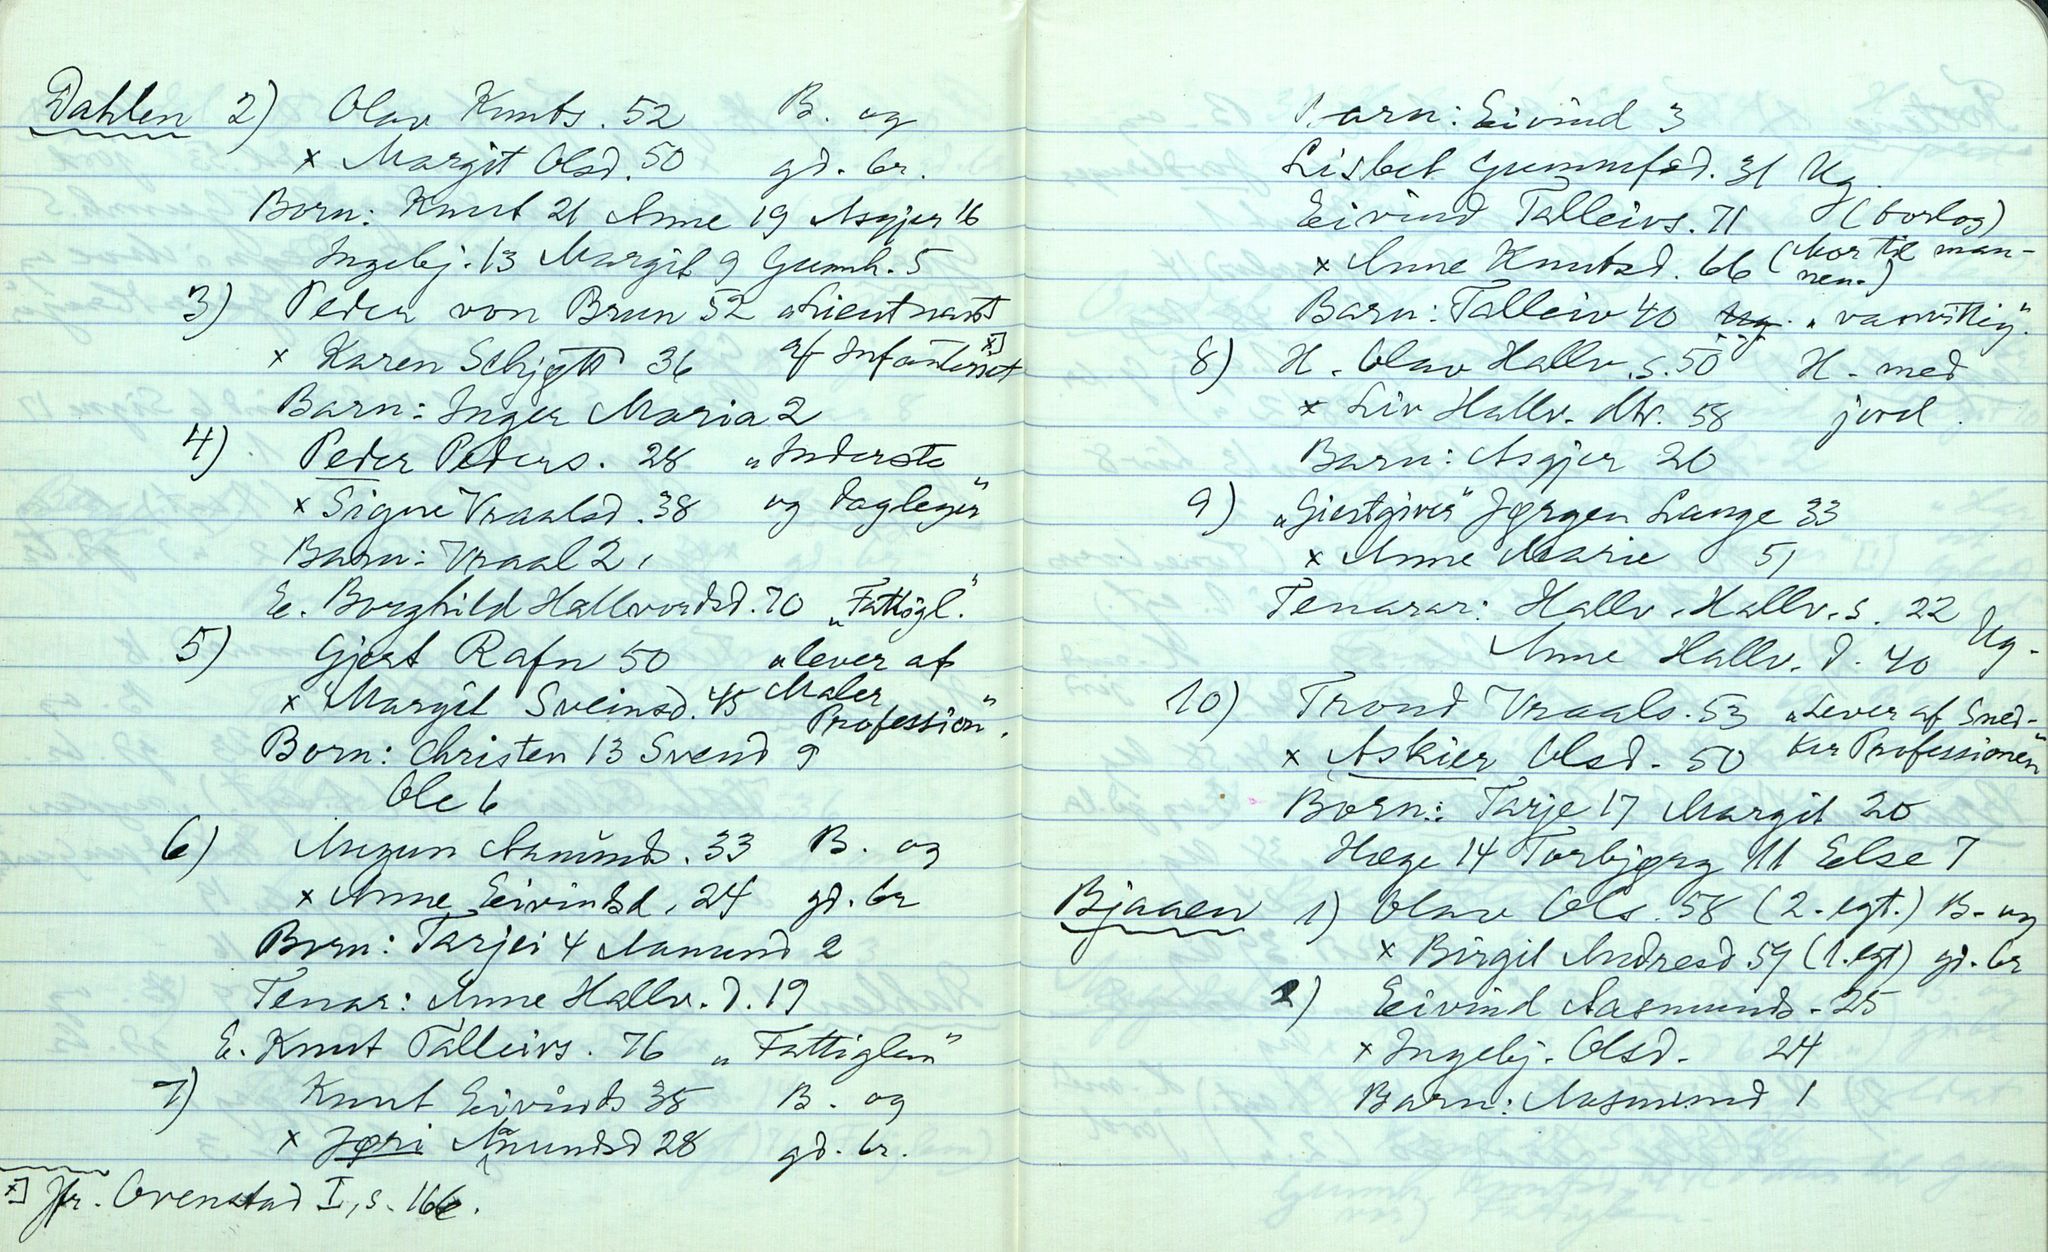 Dahlen 2) Olav Knuts. 52 B. og
x Margit Olsd. 50 gd. br.
Born: Knut 21 Anne 19 Asgjer 16
Ingebj. 13 Margit 9 Gunnh. 5
3) Peder von Brun 52 „Lieutnant
x Karen Schjøtt 36 af Infanteriet x]
Barn: Inger Maria 2
4) Peder Peders. 28 „Inderste
x Signe Vraalsd. 38 og Dagleyer"
Barn: Vraal 2
E. Borghild Hallvordsd. 70 „Fattigl."
5) Gjert Rafn 50 „lever af
x Margit Sveinsd. 45 Maler
Profession".
Born: Christen 13 Svend 9
Ole 6
6) Augun Aanunds. 33 B. og
x Anne Eivindsd. 24 gd. br
Born: Tarjei 4 Aanund 2
Tenar: Anne Hallv. d. 19
E. Knut Talleivs. 76 „Fattiglem"
7) Knut Eivinds 38 B. og
x Jøri Aanundsd 28 gd. br.
x] Jfr. Ovenstad I, s. 166.
Barn: Eivind 3
Lisbet Gunnufsd. 31 Ug.
Eivind Talleivs. 71 (Forlog)
x Anne Knutsd. 66 (Mor til man-
nen.)
Barn: Talleiv 40 ug. „vanvittig".
8) H. Olav Hallv. s. 50 H. med
x Liv Hallv. dtr. 58 jord.
Barn: Asgjer 20
9) „Giestgiver" Jørgen Lange 33
x Anne Marie 51
Tenarar: Hallv. Hallv. s. 22
Anne Hallv. d. 40 Ug.
10) Trond Vraals. 53 „Lever af Sned-
x Askier Olsd. 50 ker Professionen"
Born: Tarje 17 Margit 20
Hæge 14 Torbjørg 11 Else 7
Bjaaen 1) Olav Ols. 58 (2. egt.) B. og
x Birgit Andresd. 54 (1. egt) gd. br
2) Eivind Aasmunds. 25
x Ingebj. Olsd. 24
Barn: Aasmund 1